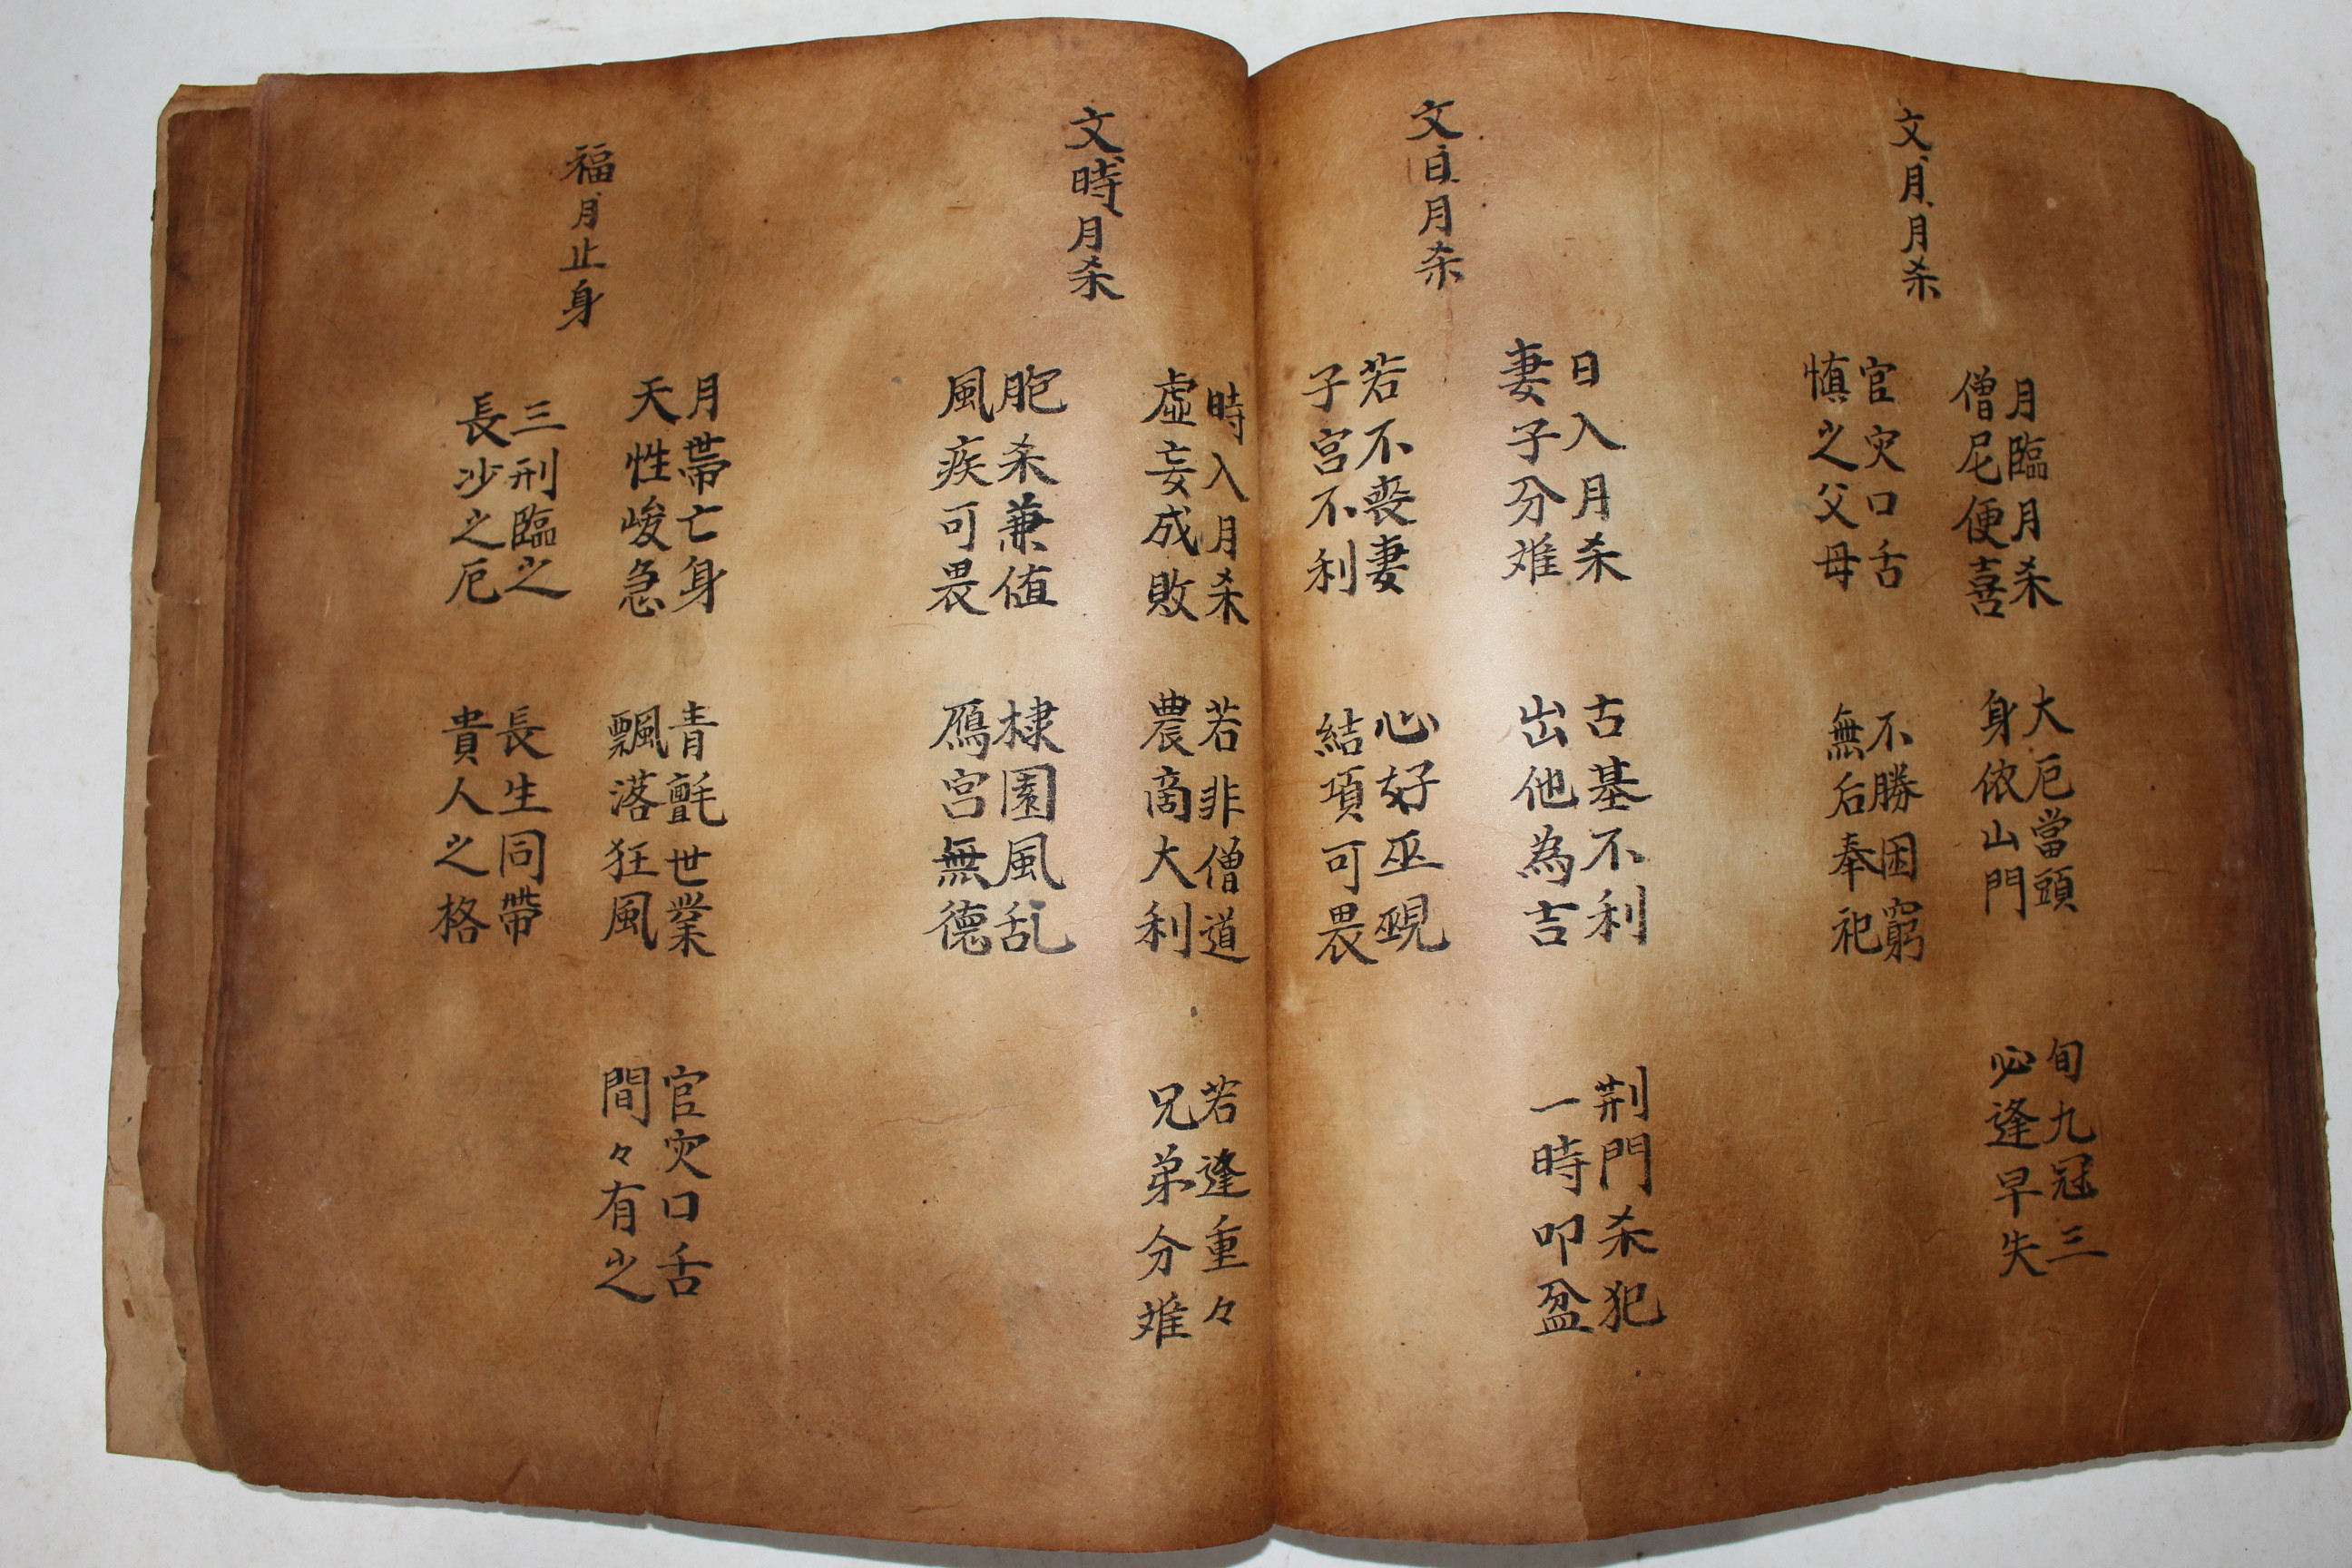 文月月杀
月臨月杀
僧尼便喜
大厄當頭
身依山門
旬九冠三
必逢早失
官灾口舌
慎之父母
不勝困窮
無后奉祀
文日月杀
日入月杀
妻子分难
古基不利
出他為吉
荆門杀犯
一時叩盆
若不喪妻
子宮不利
心好巫覡
結項可畏
文時月杀
時入月杀
虛妄成敗
若非僧道
農商大利
若逢重々
兄弟分难
胞杀兼值
風疾可畏
棣園風乱
鴈宮無德
福月亡身
月帶亡身
天性峻急
青氈世業
飄落狂風
官灾口舌
間々有之
三刑臨之
長沙之厄
長生同帶
貴人之格